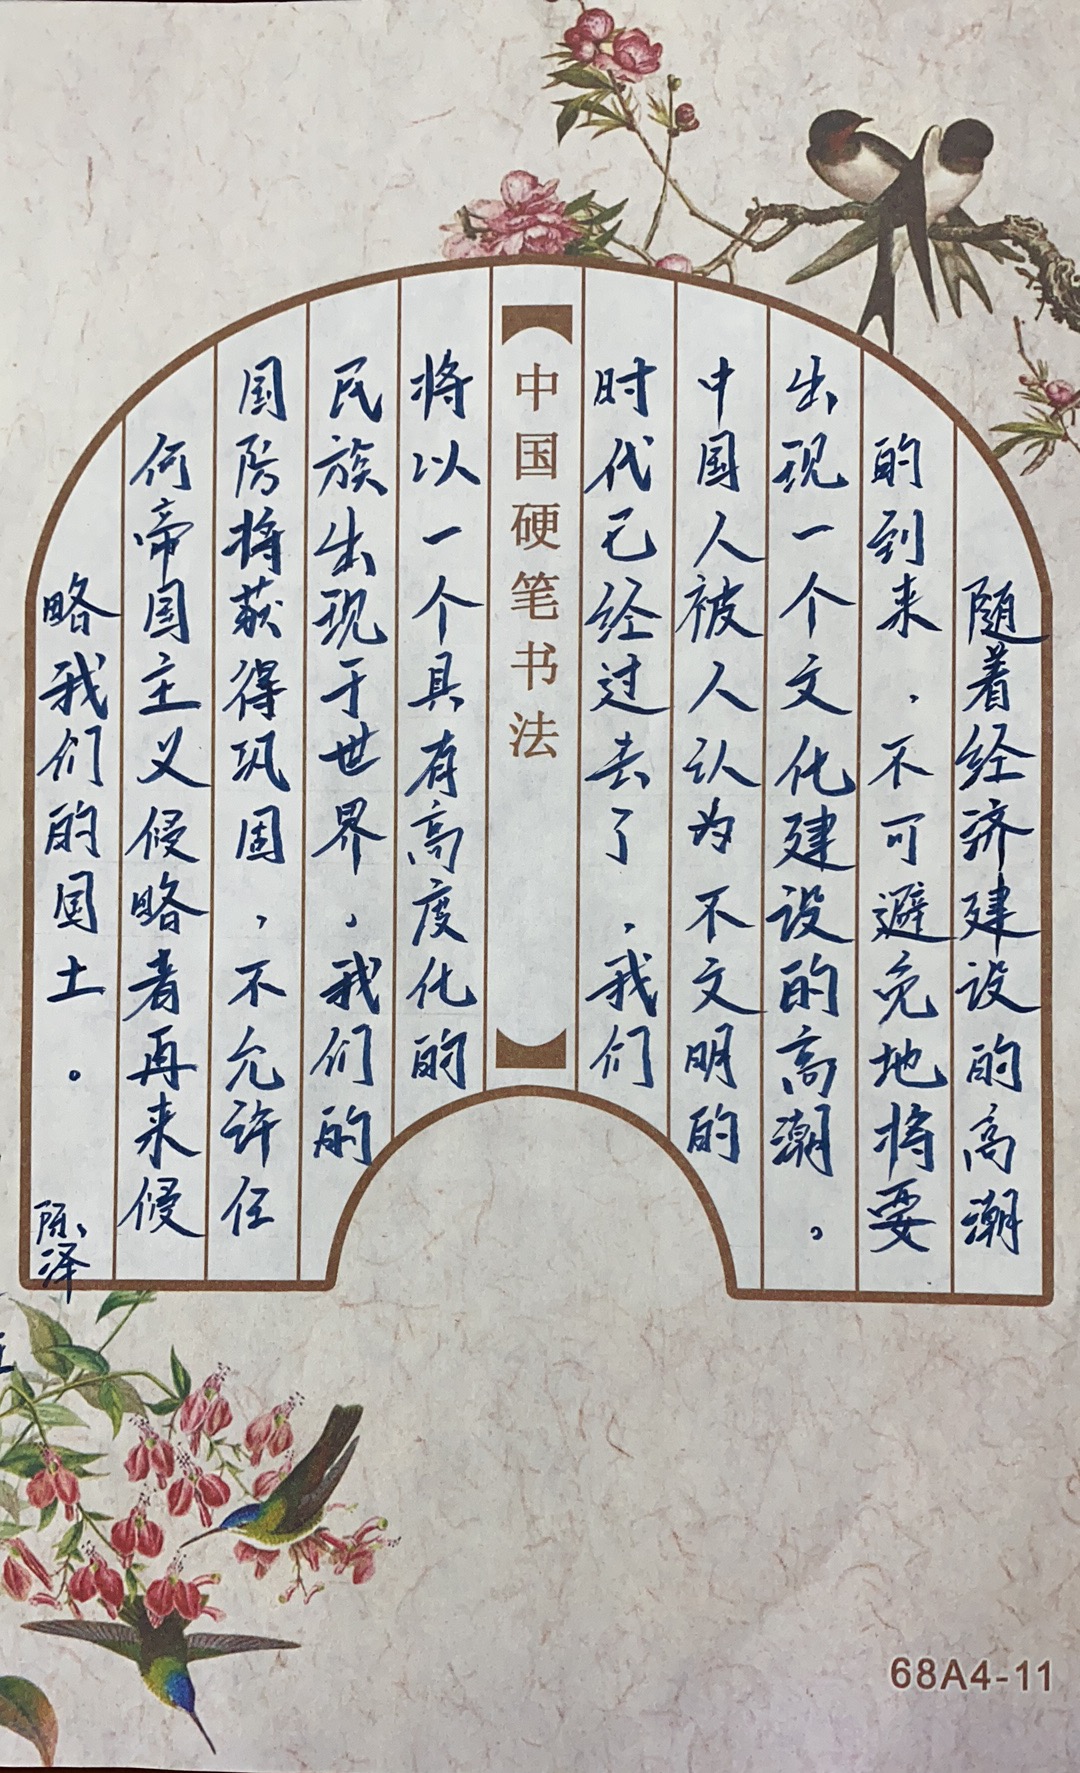 随着经济建设的高潮
的到来，不可避免地将要
出现一个文化建设的高潮。
中国人被人认为不文明的
时代已经过去了，我们
中国硬笔书法
将以一个具有高度化的
民族出现于世界，我们的
国防将获得巩固，不允许任
何帝国主义侵略者再来侵
略我们的国土。
陈泽
68A4-11